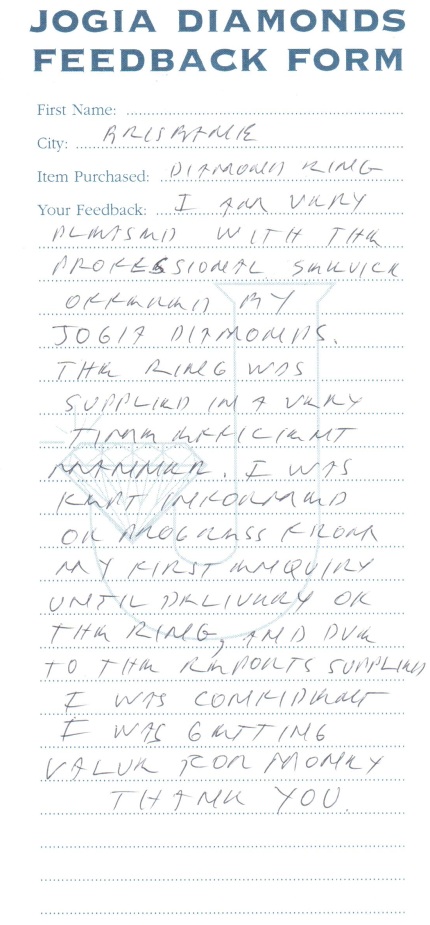 JOGIA DIAMONDS
FEEDBACK FORM
First Name:
City: BRISBANE
Item Purchased: DIAMOND RING
Your Feedback: I AM VERY
PLEASED WITH THE
PROFESSIONAL SERVICE
OFFERED BY
JOGIA DIAMONDS.
THE RING WAS
SUPPLIED IN A VERY
TIME EFFICIENT
MANNER. I WAS
KEPT INFORMED
OF PROGRESS FROM
MY FIRST ENQUIRY
UNTIL DELIVERY OF
THE RING, AND DUE
TO THE REPORTS SUPPLIED
I WAS CONFIDENT
I WAS GETTING
VALUE FOR MONEY
THANK YOU.